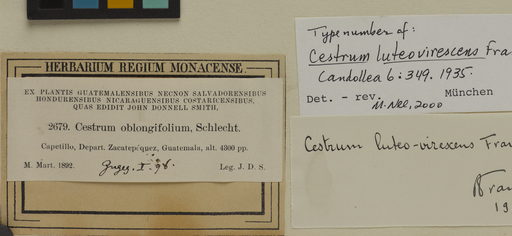 HERBARIUM REGIUM MONACENSE.
EX PLANTIS GUATEMALENSIBUS NECNON SALVADORENSIBUS
HONDURENSIBUS NICARAGUENSIBUS COSTARICENSIBUS,
QUAS EDIDIT JOHN DONNELL SMITH,
2679. Cestrum oblongifolium, Schlecht.
Capetillo, Depart. Zacatepéquez, Guatemala, alt. 4300 pp.
M. Mart. 1892. Leg. J. D. S.
Type number of:
Cestrum luteovirescens Fra
Candollea 6: 349. 1935.
Det. - rev. München
M. Nee, 2000
Cestrum luteo-virescens Fran
Fran
19